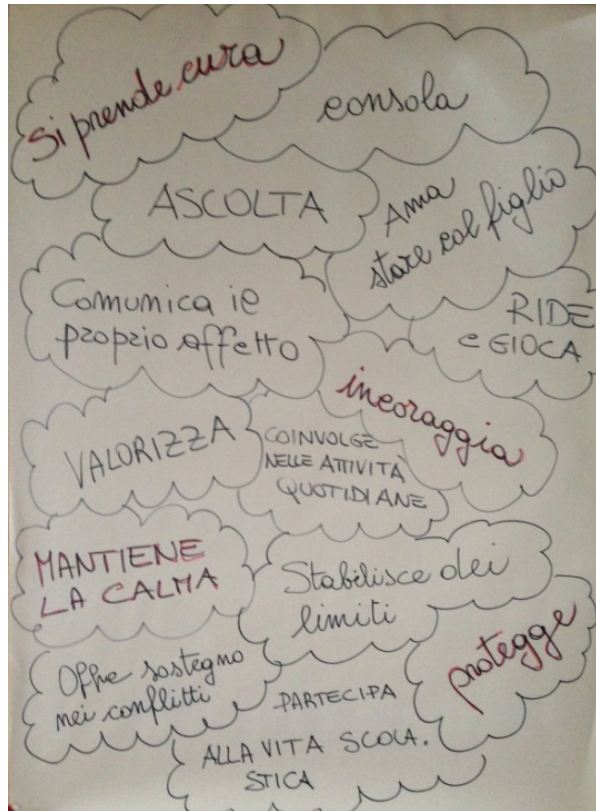 Si prende cura
consola
ASCOLTA
Ama
stare col figlio
Comunica il
proprio affetto
RIDE
e GIOCA
incoraggia
VALORIZZA
COINVOLGE
NELLE ATTIVITÀ
QUOTIDIANE
MANTIENE
LA CALMA
Stabilisce dei
limiti
Offre sostegno
nei conflitti
protegge
PARTECIPA
ALLA VITA SCOLA.
STICA